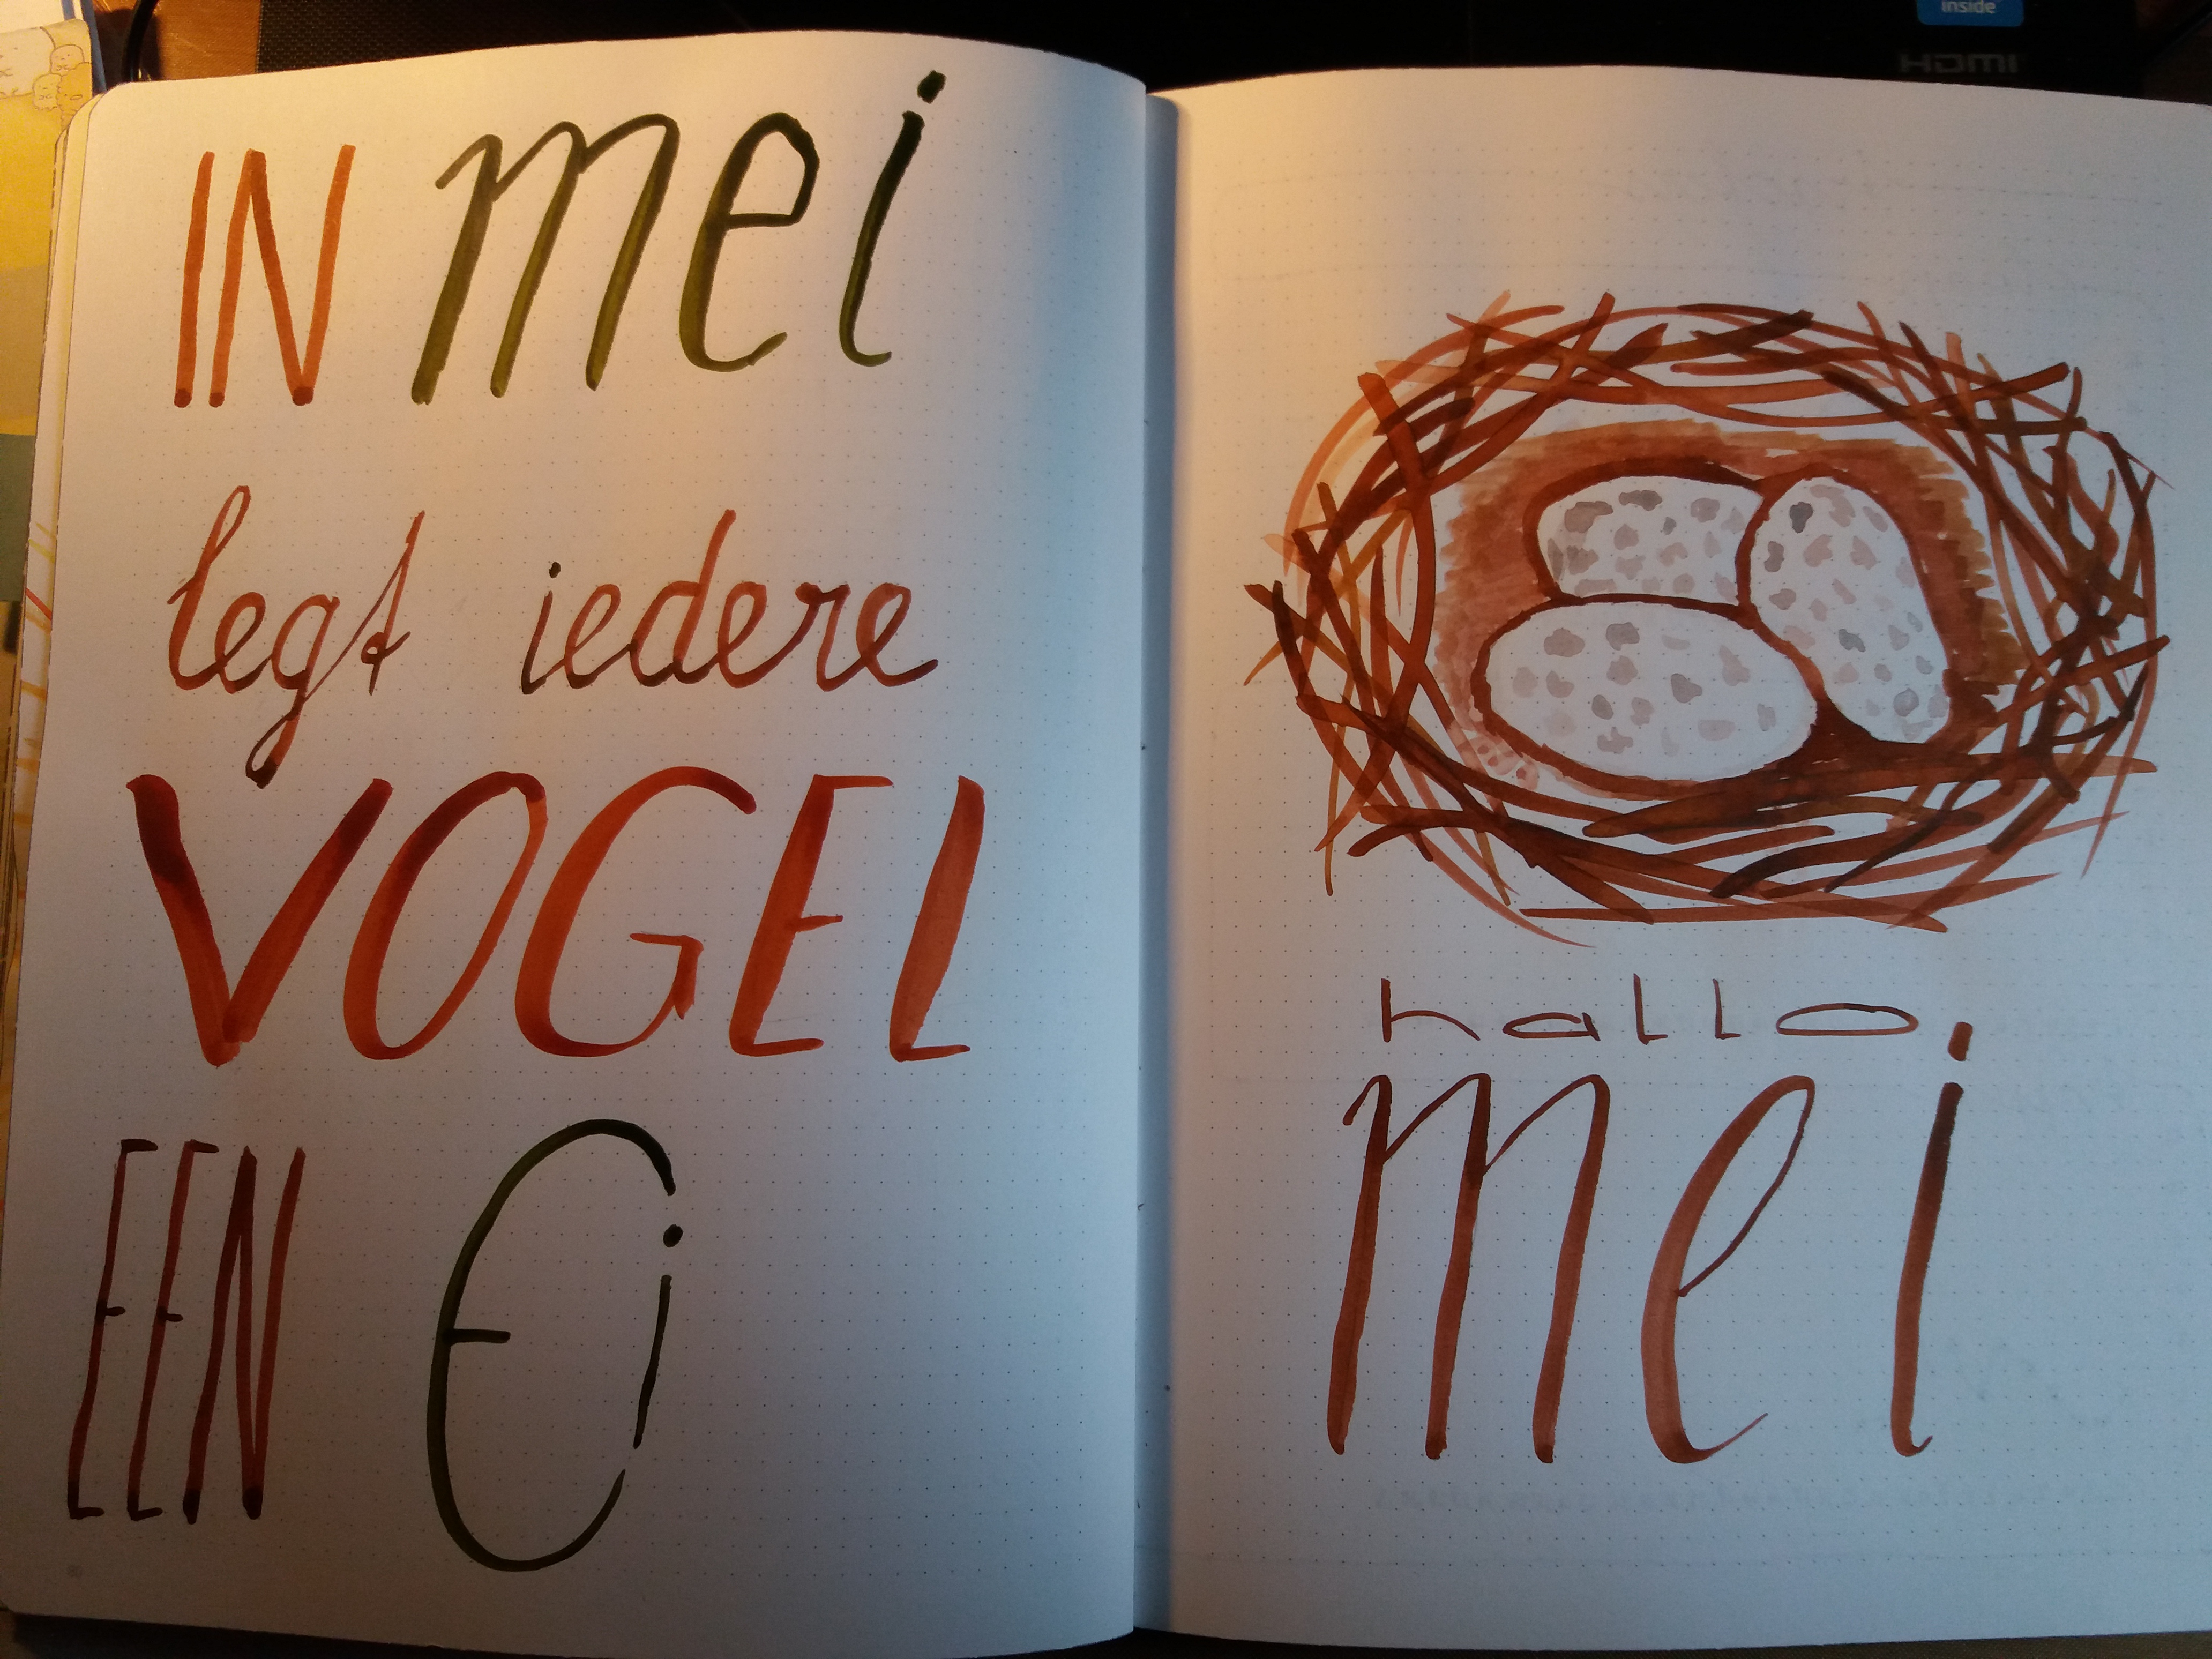 inside
HDMI
IN mei
legt iedere
VOGEL
EEN Ei
hallo
mei